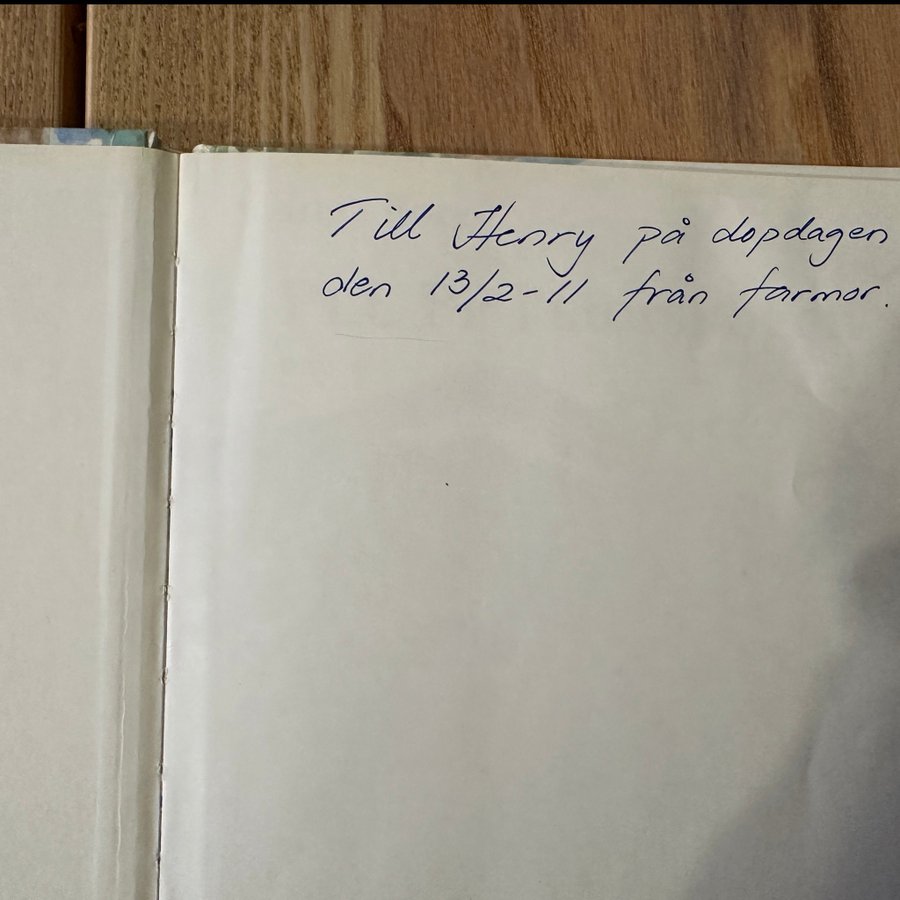 Till Henry på dopdagen
den 13/2-11 från farmor.